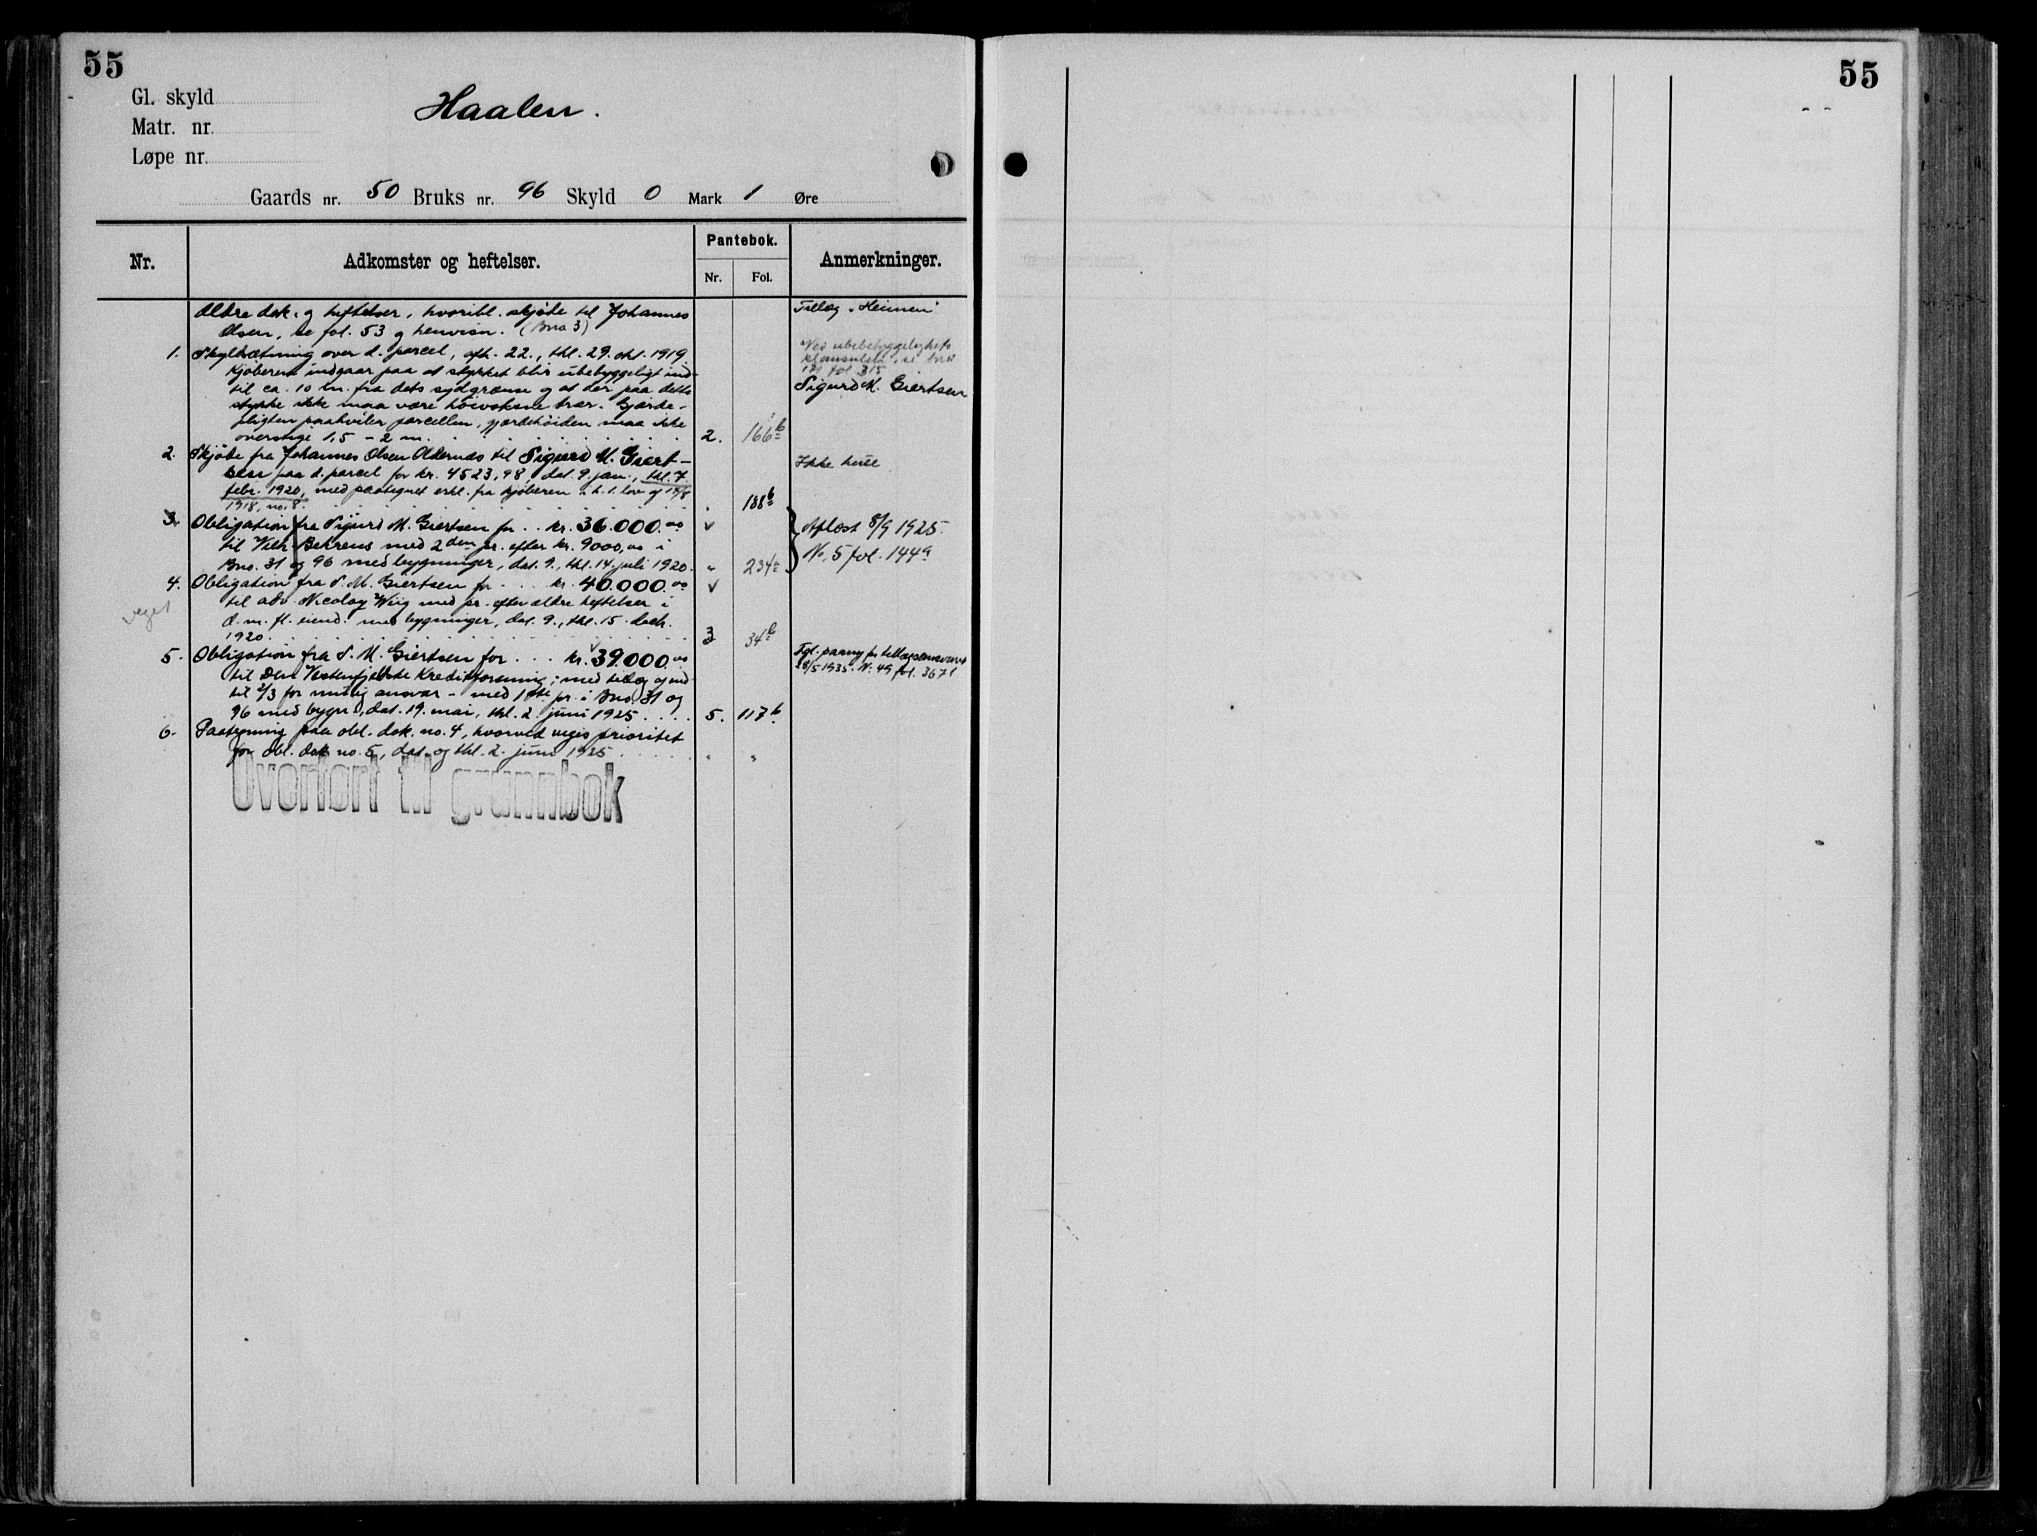 55
55
Gl. skyld
Haalen.
Matr. nr.
Løpe nr.
Gaards nr. 50 Bruks nr. 96 Skyld 0 Mark 1 Øre
Nr.
Adkomster og heftelser.
Pantebok.
Nr. Fol.
Anmerkninger.
Ældre dok. og heftelser, hvoribl. skjøte til Johannes
Olsen, se fol. 53 og henvisn. (Bno 3)
Tillæg "Heimen"
1. Skyldsætning over d. parcel, afh. 22., thl. 29. okt. 1919.
Kjøberen indgaar paa at stykket blir ubebyggeligt ind-
til ca. 10 m. fra dets sydgrænse og at der paa dette
stykke ikke maa være höivoksne trær. Gjærde-
pligten paahviler parcellen, gjærdehöiden maa ikke
overstige 1,5 - 2 m. 2. 166b
Ved ubebyggelighets
klausulen, se bno
fol 315
Sigurd M. Giertsen
2. Skjøte fra Johannes Olsen Aldernæs til Sigurd M. Giert-
sen paa d. parcel for kr. 4523,98, dat. 9. jan., thl. 7.
febr. 1920, med paategnet erkl. fra kjøberen i h. t. lov og 16/8
1918, no. 8. 188b
Ikke huse
3. Obligation fra Sigurd M. Giertsen for .. kr. 36.000.00
til Vilh. Behrens med 2den pr. efter kr. 9000,00 i
Bno. 31 og 96 med bygninger, dat. 9., thl. 14. juli 1920. " 234a
Aflæst 8/9 1925.
N. 5 fol. 144a
4. Obligation fra S. M. Giertsen for ... kr. 40.000.00
til adv. Nicolay Wiig med pr. efter ældre heftelser i
d. m. fl. eiend. med bygninger, dat. 9., thl. 15. decbr.
1920. 3 34b
5. Obligation fra S. M. Giertsen for ... kr. 39.000.00
til Den Vestenfjeldske Kreditforening; med tillæg ind-
til 2/3 for mulig ansvar - med 1ste pr. i Bno. 31 og
96 med bygn., dat. 19. mai, thl. 2. juni 1925 .... 5. 117b
Tgl. paany for tillægsansvaret
18/5 1935. N. 49 fol. 367
6. Paategning paa obl. dok. no. 4, hvorved viges prioritet
for obl. dok no. 5, dat. og thl. 2. juni 1925 ..... " "
Overført til grunnbok